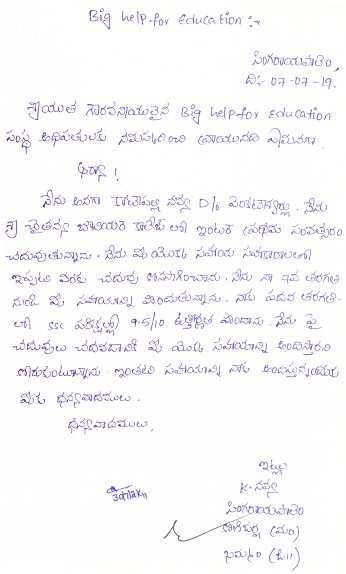 Big help for Education :-
సింగరాయపాలెం,
ది:- 07-07-19.
శ్రీయుత గౌరవనీయులైన Big help for Education
సంస్థ అధిపతులకు నమస్కరించి వ్రాయునది ఏమనగా.
ఆర్యా !
నేను అనగా కాటేపల్లి నవ్య D/o వెంకటేశ్వర్లు. నేను
శ్రీ చైతన్య జూనియర్ కాలేజ్ లో ఇంటర్ ప్రథమ సంవత్సరం
చదువుతున్నాను. నేను మీ యొక్క సహాయ సహకారాలతో
ఇప్పటి వరకు చదువు కొనసాగించాను. నేను నా 7వ తరగతి
నుండి మీ సహాయాన్ని పొందుతున్నాను. నాకు పదవ తరగతి-
లో SSC పరీక్షల్లో 9.5/10 ఉత్తీర్ణత పొందాను. నేను పై
చదువులు చదవడానికి మీ యొక్క సహాయాన్ని అందిస్తారని
కోరుకుంటున్నాను. ఇంతటి సహాయాన్ని నాకు అందిస్తున్నందుకు
మీకు ధన్యవాదములు.
ధన్యవాదములు.
ఇట్లు
K. నవ్య
సింగరాయపాలెం
(మం)
ఖమ్మం (జి॥)